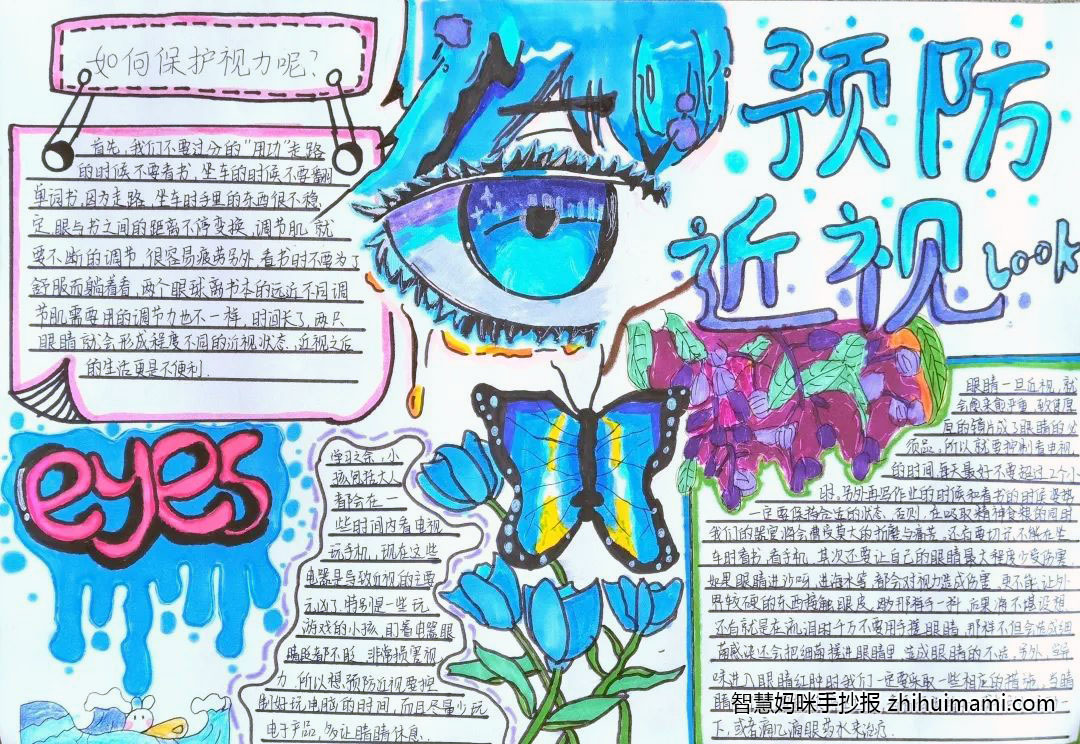 如何保护视力呢？
首先，我们不要过分的"用功"走路
的时候不要看书，坐车的时候不要翻
单词书，因为走路、坐车时手里的东西很不稳
定，眼与书之间的距离不停变换，调节肌就
要不断的调节，很容易疲劳另外，看书时不要为了
舒服而躺着看，两个眼球离书本的远近不同调
节肌需要用的调节力也不一样，时间长了，两只
眼睛就会形成程度不同的近视状态，近视之后
的生活更是不便利．
预防
近视
Look
eyes
学习之余，小
孩包括大人
都会在一
些时间内看电视
玩手机，现在这些
电器是导致近视的主要
元凶了．特别是一些玩
游戏的小孩，盯着电器眼
睛眨都不眨，非常损害视
力，所以想预防近视要控
制好玩电脑的时间，而且尽量少玩
电子产品，多让眼睛休息．
眼睛一旦近视，就
会愈来愈严重，致
的镜片成了眼睛的必
须品，所以就要控制看电视，
的时间，每天最好不要超过2个小
时．另外再写作业的时候和看书的时候
一定要保持坐的状态，否则，在吸取精神食粮的同时
我们的器官将会遭受莫大的折磨与痛苦，还有要切记不能在坐
车时看书、看手机，其次还要让自己的眼睛最大程度少受伤害
如果眼睛进沙呀，进海水等，都会对视力造成伤害，更不能让外
界较硬的东西接触眼皮，如那样子一料，后果将不堪设想
还有就是在流泪时千万不要用手搓眼睛，那样不但会造成细
菌感染还会把细菌搓进眼睛里，造成眼睛的不适，另外，当异
味进入眼睛红肿时我们一定要采取一些相应的措施，
下，或者滴几滴眼药水来治疗．
智慧妈咪手抄报 zhihuimami.com